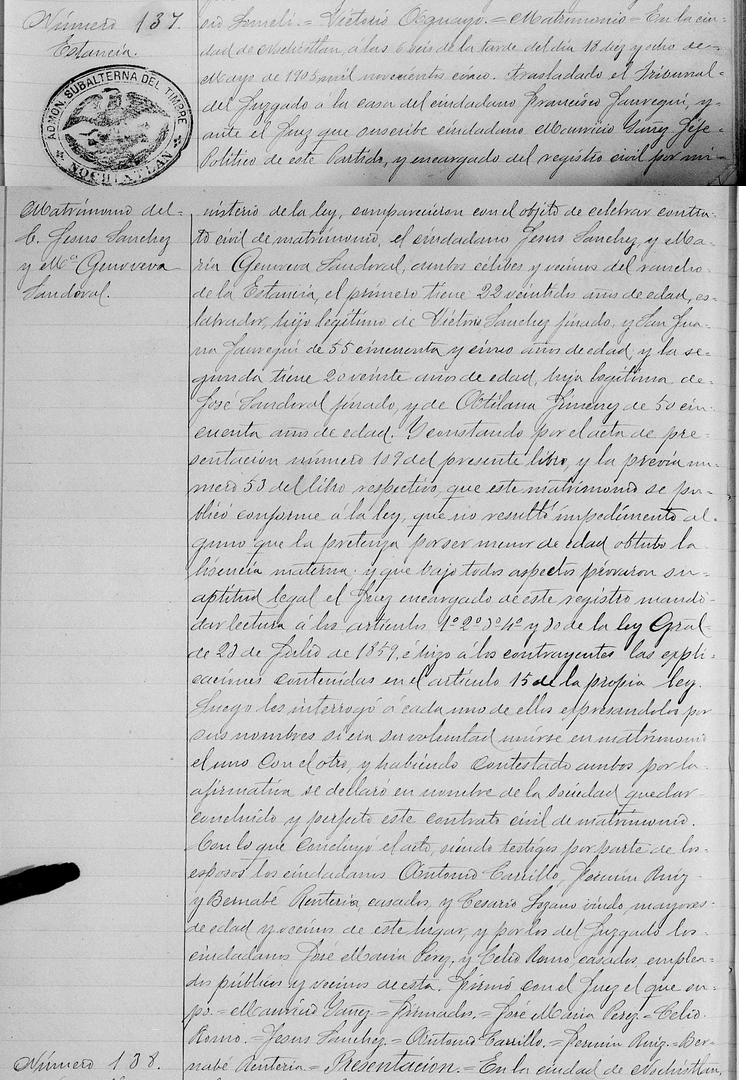 Número 137.
Estancia.
ADMON. SUBALTERNA DEL TIMBRE
NOCHIXTLAN
sio Lomelí.= Victorio Oséguayo.= Matrimonio = En la ciu-
dad de Nochistlan, á las 6 seis de la tarde del día 18 diez y ocho de
Mayo de 1905 mil novecientos cinco. Trasladado el Tribunal
del Juzgado á la casa del ciudadano Francisco Jauregui, y
ante el Juez que suscribe ciudadano Mauricio Yañez Jefe
Político de este Partido, y encargado del registro civil por mi-
Matrimonio del
C. Jesus Sanchez
y Mª Genoveva
Sandoval.
nisterio de la ley, comparecieron con el objeto de celebrar contra-
to civil de matrimonio, el ciudadano Jesus Sanchez, y Ma-
ría Genoveva Sandoval, ambos célibes y vecinos del rancho
de la Estancia, el primero tiene 22 veintidos años de edad, es
labrador, hijo legítimo de Victorio Sanchez finado, y Jua-
na Jauregui de 55 cincuenta y cinco años de edad, y la se-
gunda tiene 20 veinte años de edad, hija legítima de
José Sandoval finado, y de Jimenez de 50 cin-
cuenta años de edad. Y constando por el acta de pre-
sentacion número 109 del presente libro, y la previa nu-
mero 53 del libro respectivo, que este matrimonio se pu-
blicó conforme á la ley, que no resultó impedimento al-
guno que la pretenza por ser menor de edad obtubo la
lisencia materna y que bajo todos aspectos provaron su
aptitud legal el Juez encargado de este registro mandó
dar lectura á los artículos 1º 2º 3º 4º y 30 de la ley Gral
de 23 de Julio de 1859, é hizo á los contrayentes las expli-
caciones contenidas en el artículo 15 de la propia ley.
Luego les interrogó á cada uno de ellos expresandolos por
sus nombres si era su voluntad unirse en matrimonio
el uno con el otro, y habiendo contestado ambos por la
afirmativa se declaró en nombre de la sociedad quedar
concluido y perfecto este contrato civil de matrimonio.
Con lo que concluyó el acto, siendo testigos por parte de los
esposos los ciudadanos Antonio Carrillo, Fermin Ruiz
y Bernabé Renteria, casados, y Cesario Lozano viudo, mayores
de edad y vecinos de este lugar, y por los del Juzgado los
ciudadanos José Maria Perez, y Celio Romo, casados, emplea-
dos públicos y vecinos de esta. Firmó con el Juez el que su-
po.= Mauricio Yañez.= Firmados.= José Maria Perez.= Celio
Romo.= Jesus Sanchez.= Antonio Carrillo.= Fermin Ruiz.= Ber-
Número 138.
nabé Renteria.= Presentacion.= En la ciudad de Nochistlan,